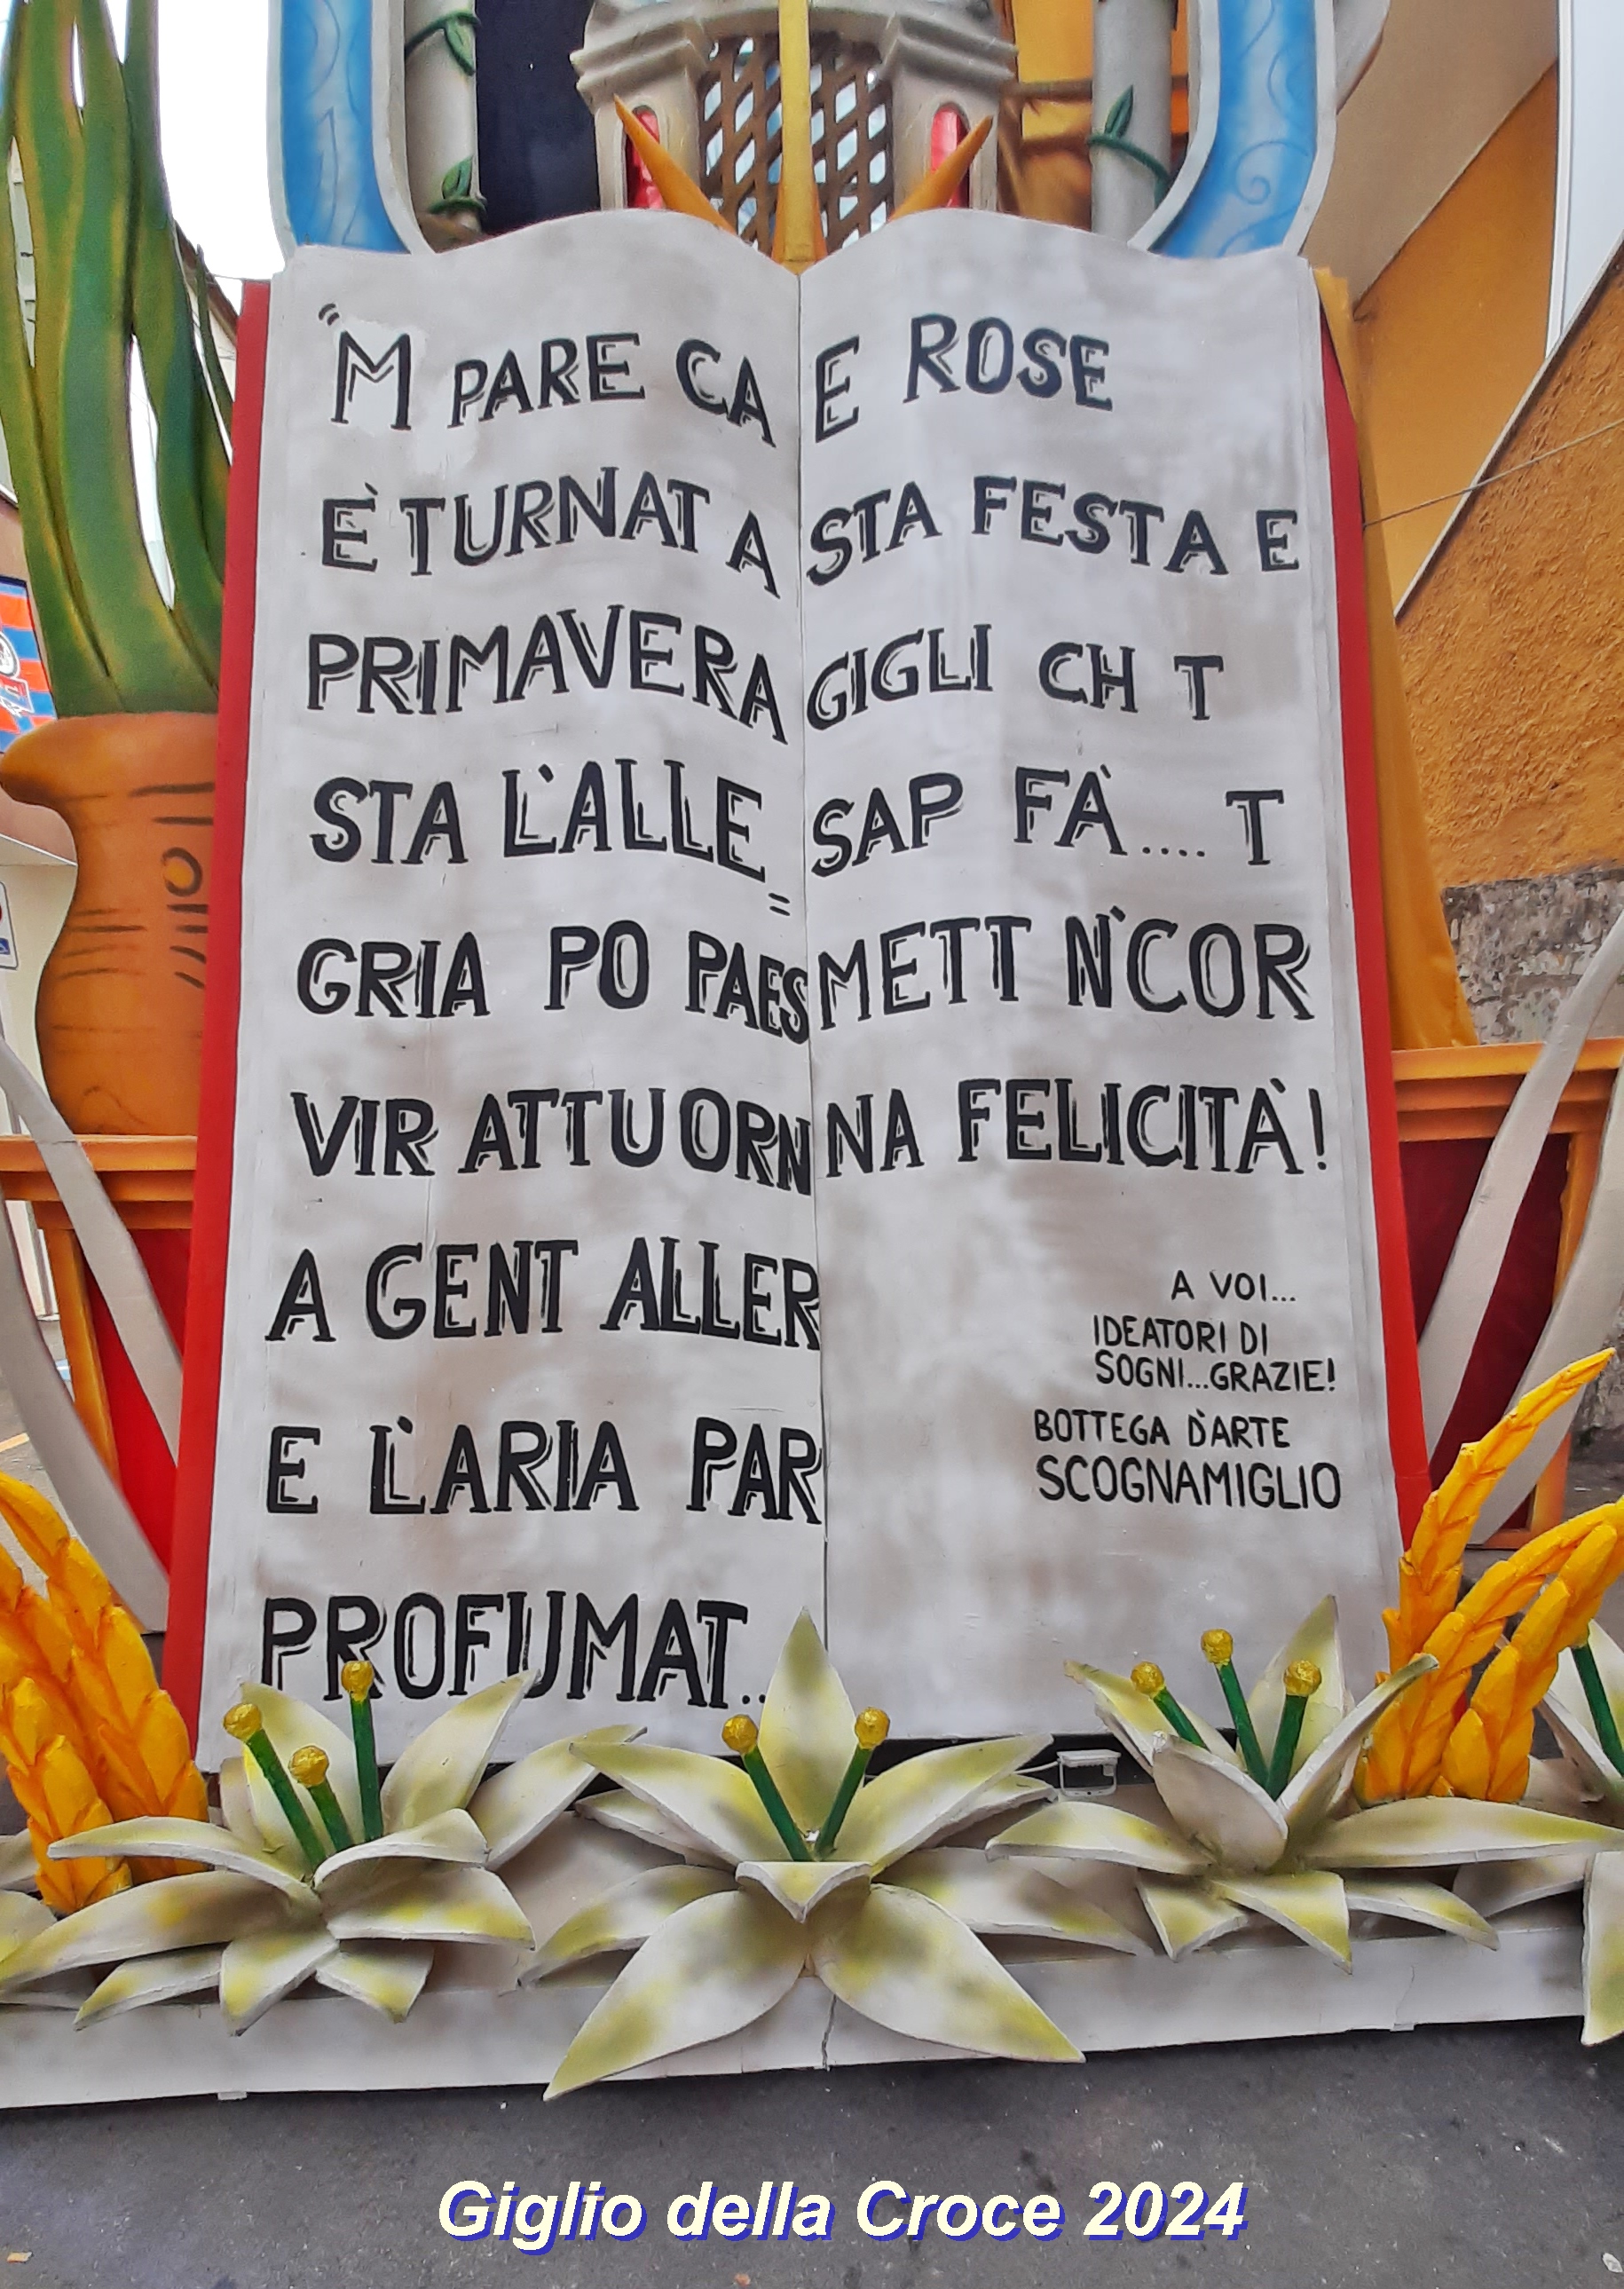 "M PARE CA
È TURNAT A
PRIMAVERA
STA L'ALLE=
GRIA PO PAES
VIR ATTUORN
A GENT ALLER
E L'ARIA PAR
PROFUMAT...
E ROSE
STA FESTA E
GIGLI CH T
SAP FÀ.... T
METT N'COR
NA FELICITÀ!
A VOI...
IDEATORI DI
SOGNI...GRAZIE!
BOTTEGA D'ARTE
SCOGNAMIGLIO
Giglio della Croce 2024